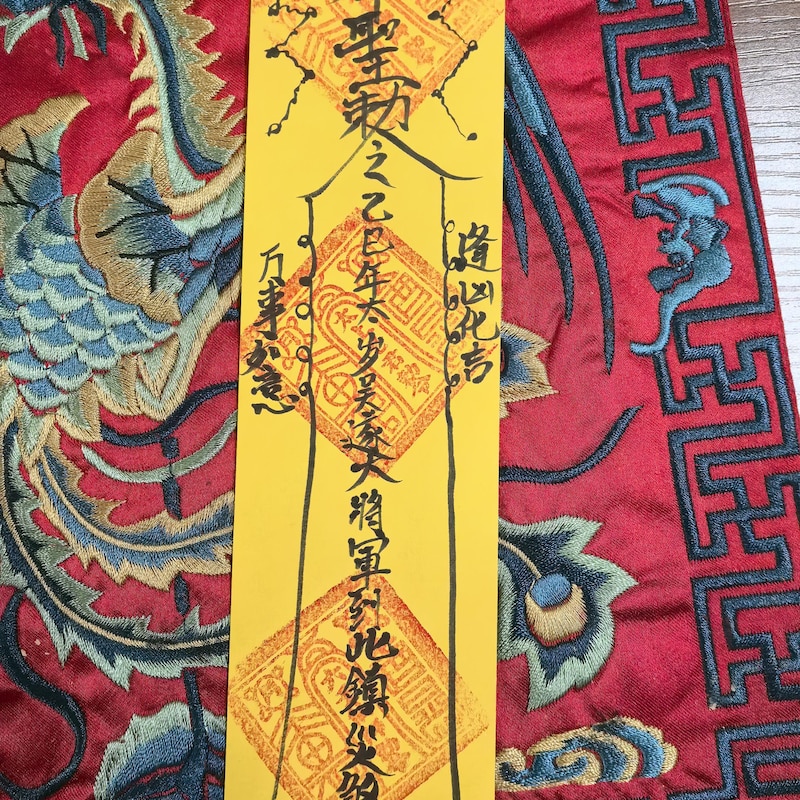 逢凶化吉
聖勅之乙巳年太岁吴遂大將軍到此鎮災
万事如意